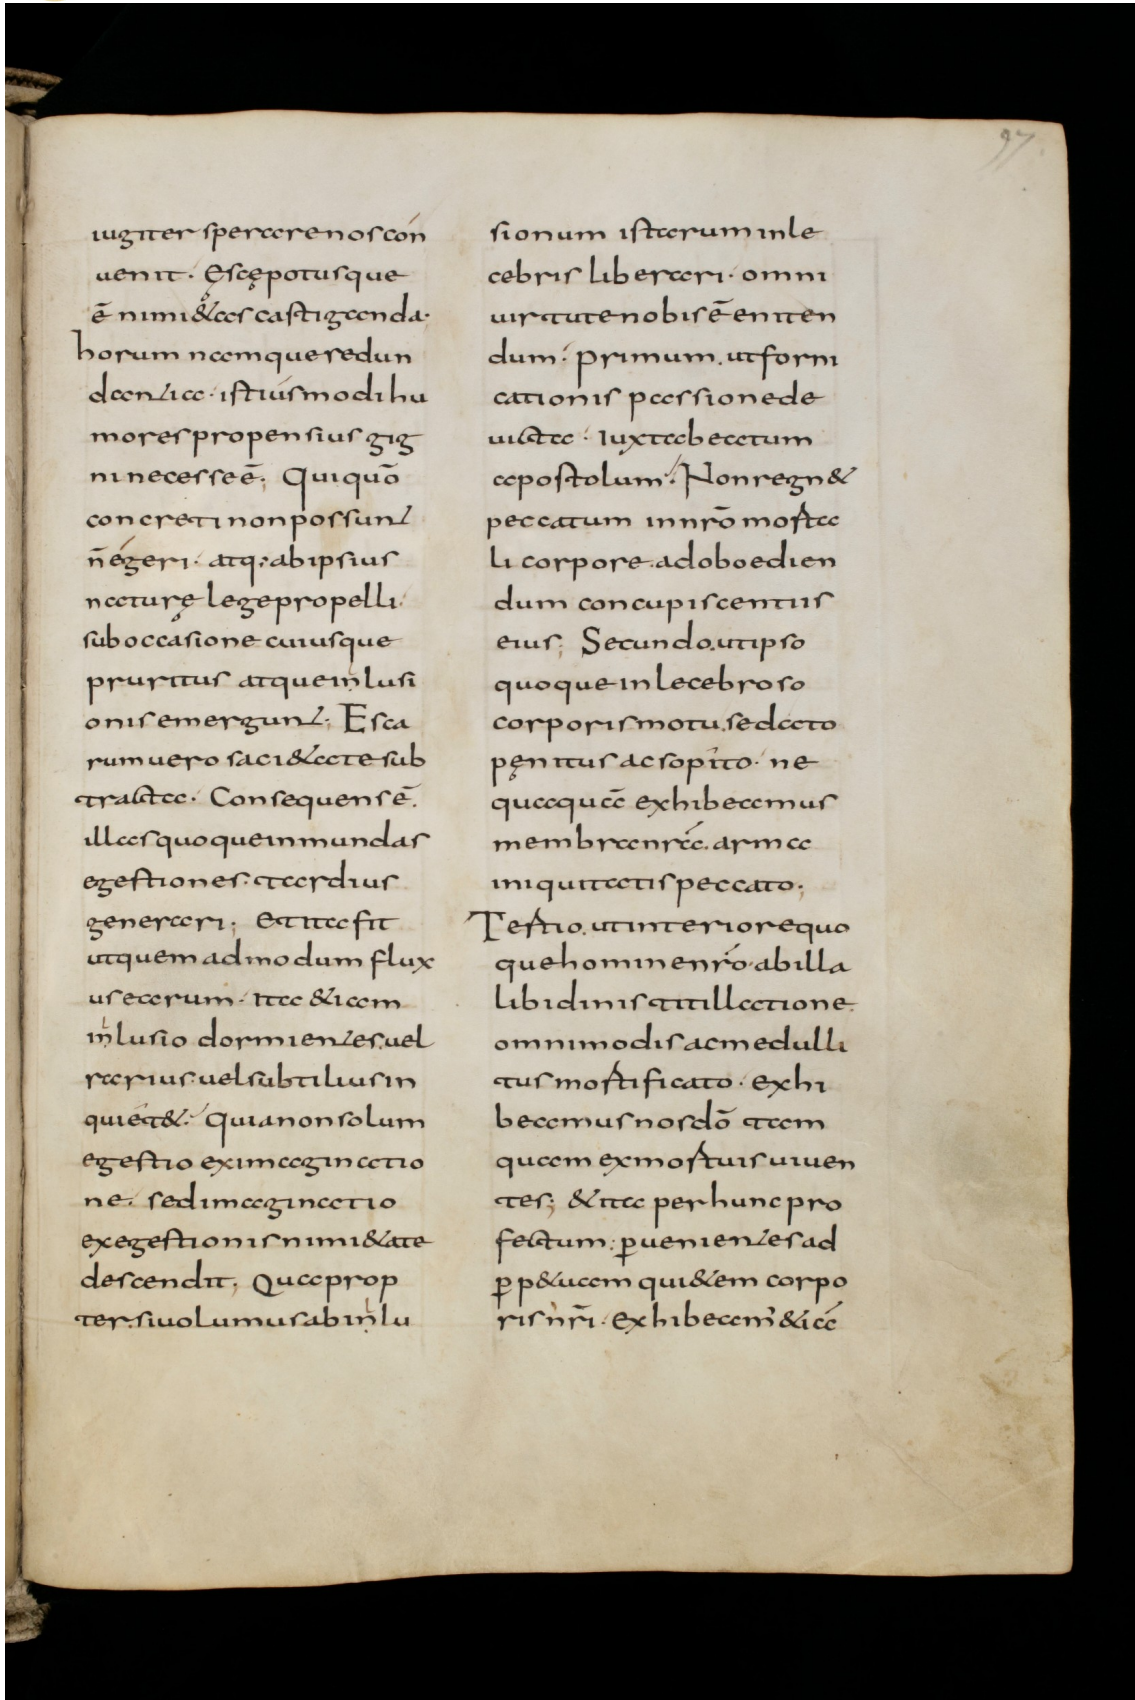 97
iugiter sperare nos con
uenit. Escę potusque
ē nimi&as castiganda.
horum namque redun
dantia. istiusmodi hu
mores propensius gig
ni necesse ē; Qui quō
concreti non possunt
n̄ egeri. atq: ab ipsius
naturę lege propelli.
sub occasione cuiusque
pruritus atque inlusi
onis emergunt; Esca
rum uero saci&ate sub
tracta. Consequens ē.
illas quoque inmundas
egestiones. tardius
generari; Et ita fit
ut quem ad modum flux
us earum. ita &iam
inlusio dormientes. uel
rarius. uel subtilius in
qui&&. Quia non solum
egestio ex imaginatio
ne. sed imaginatio
ex egestionis nimi&ate
descendit; Quaprop
ter. si uolumus ab inlu
sionum istarum inle
cebris liberari. omni
uirtute nobis ē eniten
dum. primum. ut forni
cationis passione de
uicta. iuxta beatum
apostolum. Non regn&
peccatum in nrō morta
li corpore. ad oboedien
dum concupiscentiis
eius; Secundo. ut ipso
quoque inlecebroso
corporis motu. sedato
pęnitus ac sopito. ne
quaquā exhibeamus
membra nrā. arma
iniquitatis peccato;
Tertio. ut interiore quo
que homine nrō. ab illa
libidinis titillatione.
omnimodis ac medulli
tus mortificato. exhi
beamus nos dō tam
quam ex mortuis uiuen
tes; &ita per hunc pro
fectum. ꝑuenientes ad
ꝑp&uam qui&em corpo
ris nr̄i. exhibeam' &iā